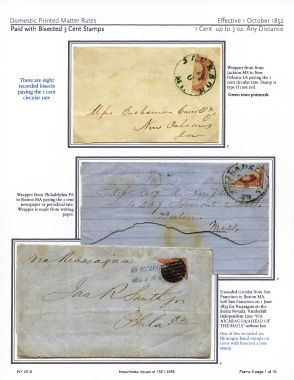 Domestic Printed Matter Rates
Effective 1 October 1852
Paid with Bisected 3 Cent Stamps
1 Cent up to 3 oz. Any Distance
There are eight
recorded bisects
paying the 1 cent
circular rate
Wrapper front from
Jackson MS to New
Orleans LA paying the 1
cent circular rate. Stamp is
type II rose red.
Green town postmark.
JACKSON
Messrs Buchannan Carroll & Co
New Orleans
La
Wrapper from Philadelphia PA
to Boston MA paying the 1 cent
newspaper or periodical rate.
Wrapper is made from writing
paper.
Boston
Mass
Unsealed circular from San
Francisco to Boston MA.
Left San Francisco on 1 June
1853 for Nicaragua on the
Sierra Nevada. Vanderbilt
Independent Line "VIA
NICARAGUA/AHEAD OF
THE MAILS" without box.
One of two recorded via
Nicaragua hand stamps on
cover with bisected 3 cent
stamp.
via Nicaragua
VIA NICARAGUA
Jas R Smith
Phila
NY 2016
Imperforate Issues of 1851-1856
Frame 5 page 1 of 16